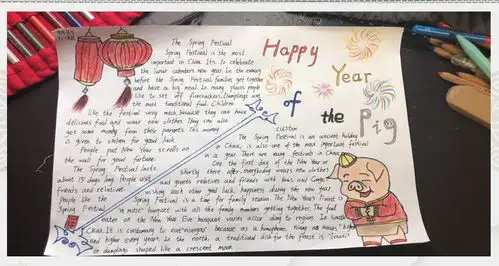 The Spring Festival
Spring Festival is the most
important in China. It's to celebrate
the lunar calendars new year. In the evening
before the Spring Festival families get together
and have a big meal. In many places people
like to set off firecrackers. Dumplings are
the most traditional food. Children
like the festival very much, because they can have
delicious food and wear new clothes. They can also
get some money from their parents. This money
is given to children for good luck.
People put New Year scrolls on
the wall for good fortune.
The Spring Festival lasts
about 15 days long. People visit
friends and relatives
People like the
Spring Festival
Happy
Year
of
the Pig
custom
The Spring Festival is an ancient holiday
in China, is also one of the most important festival
in a year. There are many festivals in China.
One the first day of the New Year or
shortly there after, everybody wears new clothes
and greets relatives and friends with bows and
wishing each other good luck, happiness during the new year.
Spring Festival is a time for family reunion. The New Year's Feast is
a "must" banquet with all the family members getting together. The food
eaten on the New Year Eve banquet varies according to region. In South
China, it is customary to eat "niangao" because as a homophone, niangao means "higher
and higher every year". In the north, a traditional dish for the feast is "Jiaozi"
or dumplings shaped like a crescent moon.